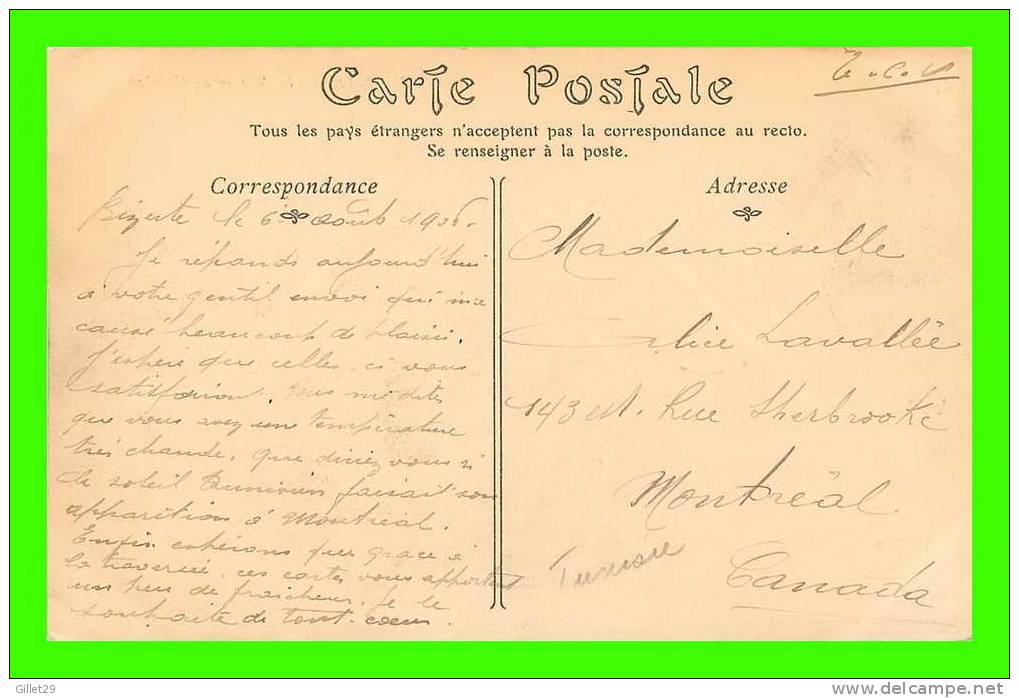 Carte Postale
T.C.V
Tous les pays étrangers n'acceptent pas la correspondance au recto.
Se renseigner à la poste.
Correspondance
Bizerte le 6 août 1906.
Je réponds aujourd'hui
à votre gentil envoi qui m'a
causé beaucoup de plaisir.
J'espère que celles-ci vous
satisferont. Vous me dites
que vous avez une température
très chaude, que diriez vous si
le soleil Tunisien faisait son
apparition à Montréal.
Enfin espérons que grace à
la traversée ces cartes vous apportent
un peu de fraicheur. Je le
souhaite de tout coeur.
Adresse
Mademoiselle
Alice Lavallée
143 est. Rue Sherbrooke
Montréal
Canada
Tunisie
Gillet29
www.delcampe.net